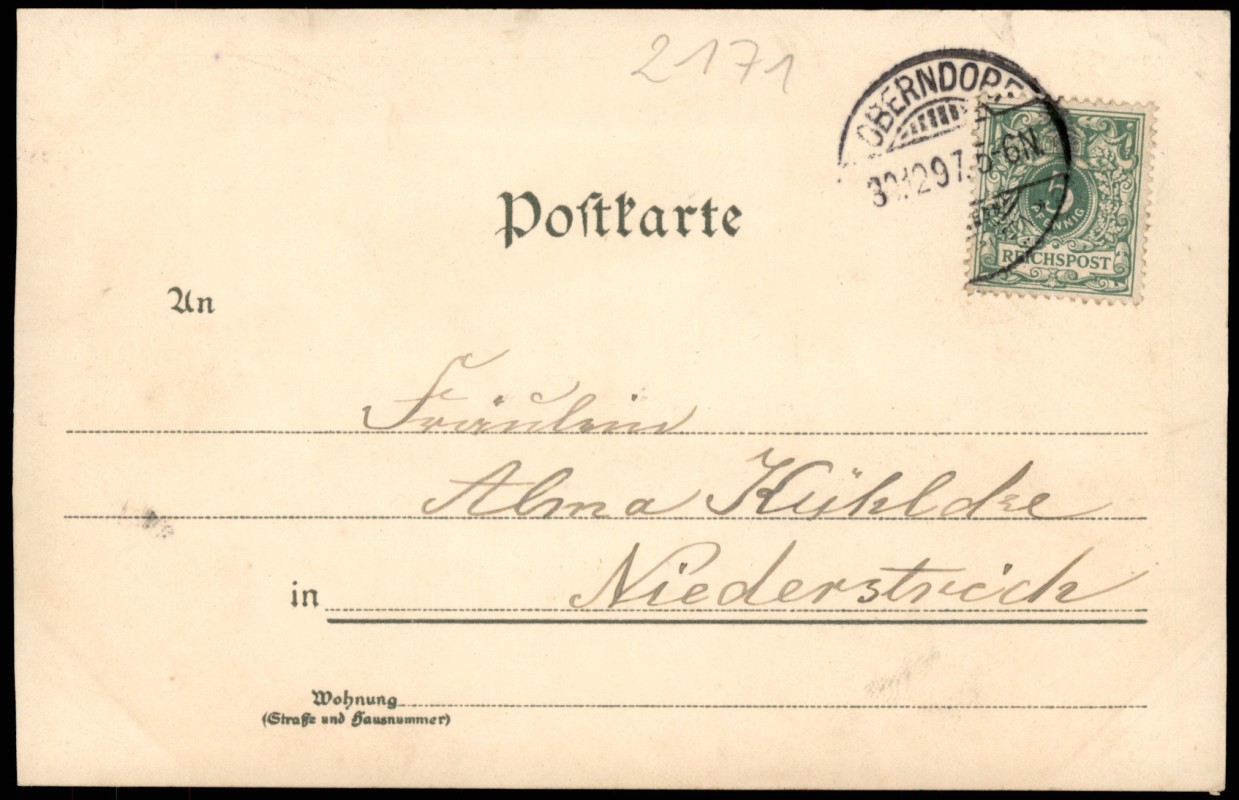 2171
OBERNDORF
30.12.97. 5-6N.
5
PFENNIG
REICHSPOST
Postkarte
An
Fräulein
Alma
Niederstrich
in
Wohnung
(Straße und Hausnummer)